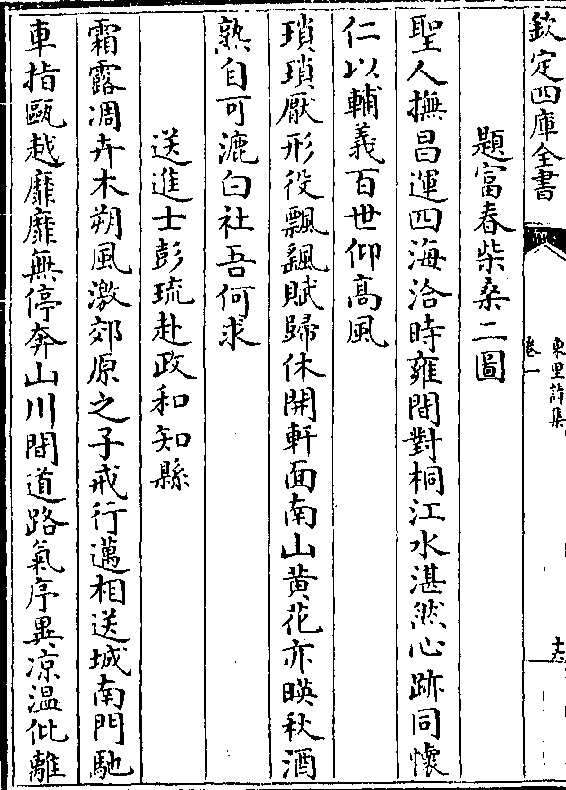 欽定四庫全書
東里詩集
卷一
十六
題富春柴桑二圖
聖人撫昌運四海洽時雍閒對桐江水湛然心跡同懷
仁以輔義百世仰高風
瑣瑣厭形役飄飄賦歸休開軒面南山黄花亦暎秋酒
熟自可漉白社吾何求
送進士彭琉赴政和知縣
霜露凋卉木朔風激郊原之子戒行邁相送城南門馳
車指甌越靡靡無停奔山川間道路氣序異凉温仳離